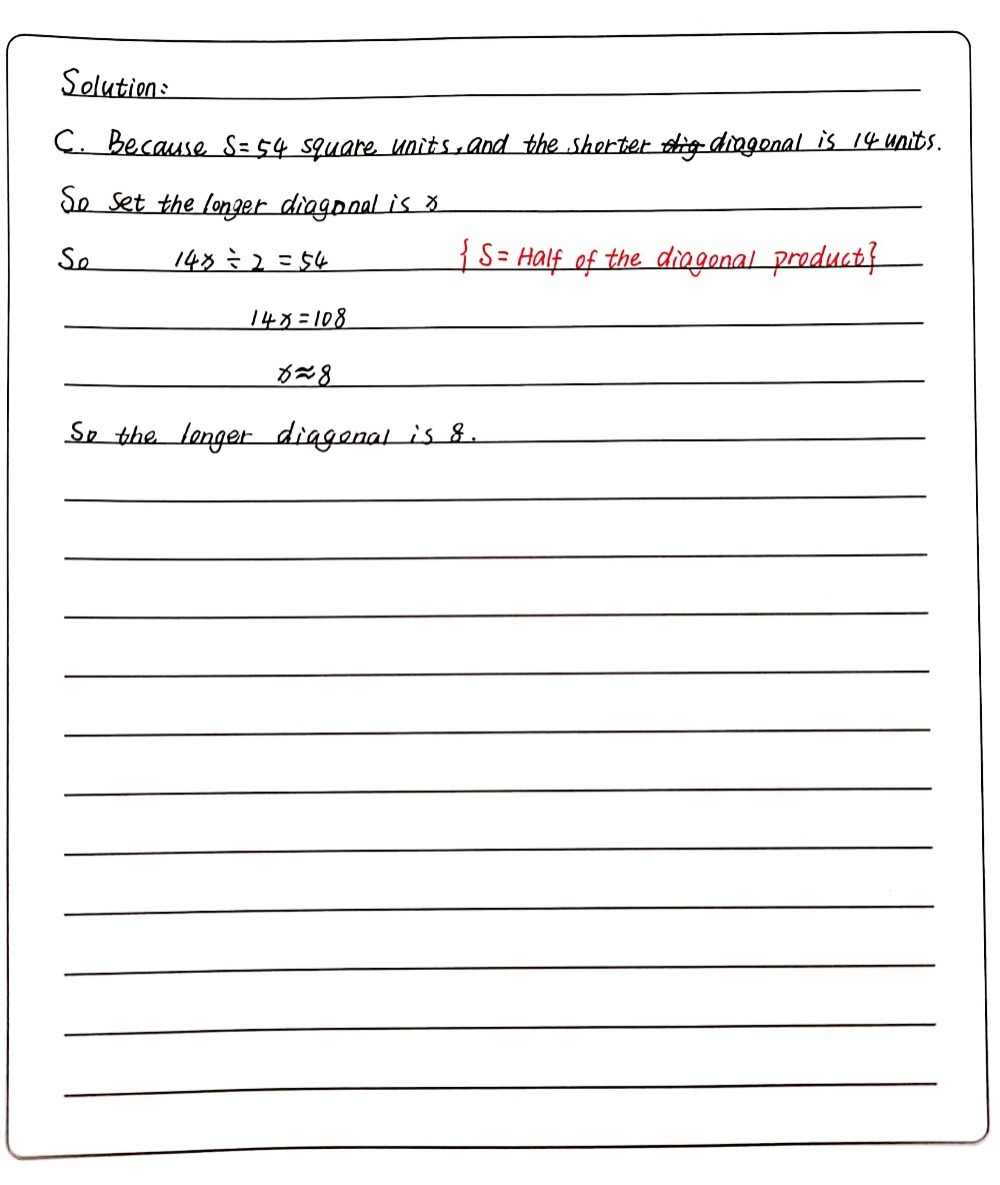 Solution:
C. Because S=54 square units, and the shorter dig diagonal is 14 units.
So set the longer diagonal is x
So 14x ÷ 2 = 54 {S= Half of the diagonal product}
14x=108
x≈8
So the longer diagonal is 8.